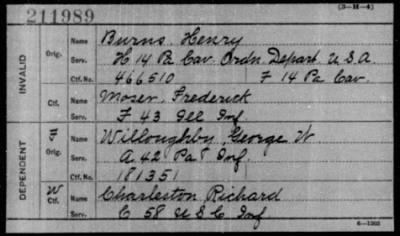 (3-H-4)
211989
INVALID
Orig. Name Burns, Henry
Serv. H 14 Pa Cav. Ordn. Depart. U S A
Ctf. No. 466510 F 14 Pa Cav.
Ctf. Name Moser, Frederick
Serv. F 43 Ill Inf
DEPENDENT
F Orig. Name Willoughby, George W
Serv. A 42 Pa Inf
Ctf. No. 181351
W Ctf. Name Charleston Richard
Serv. C 58 U S C Inf